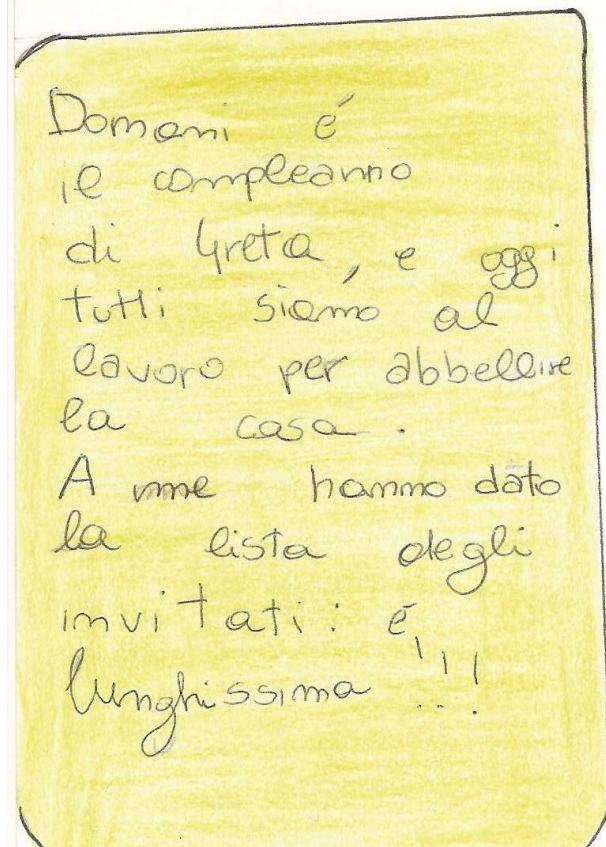 Domani é
il compleanno
di Greta, e oggi
tutti siamo al
lavoro per abbellire
la casa.
A me hanno dato
la lista degli
invitati: é
lunghissima!!!